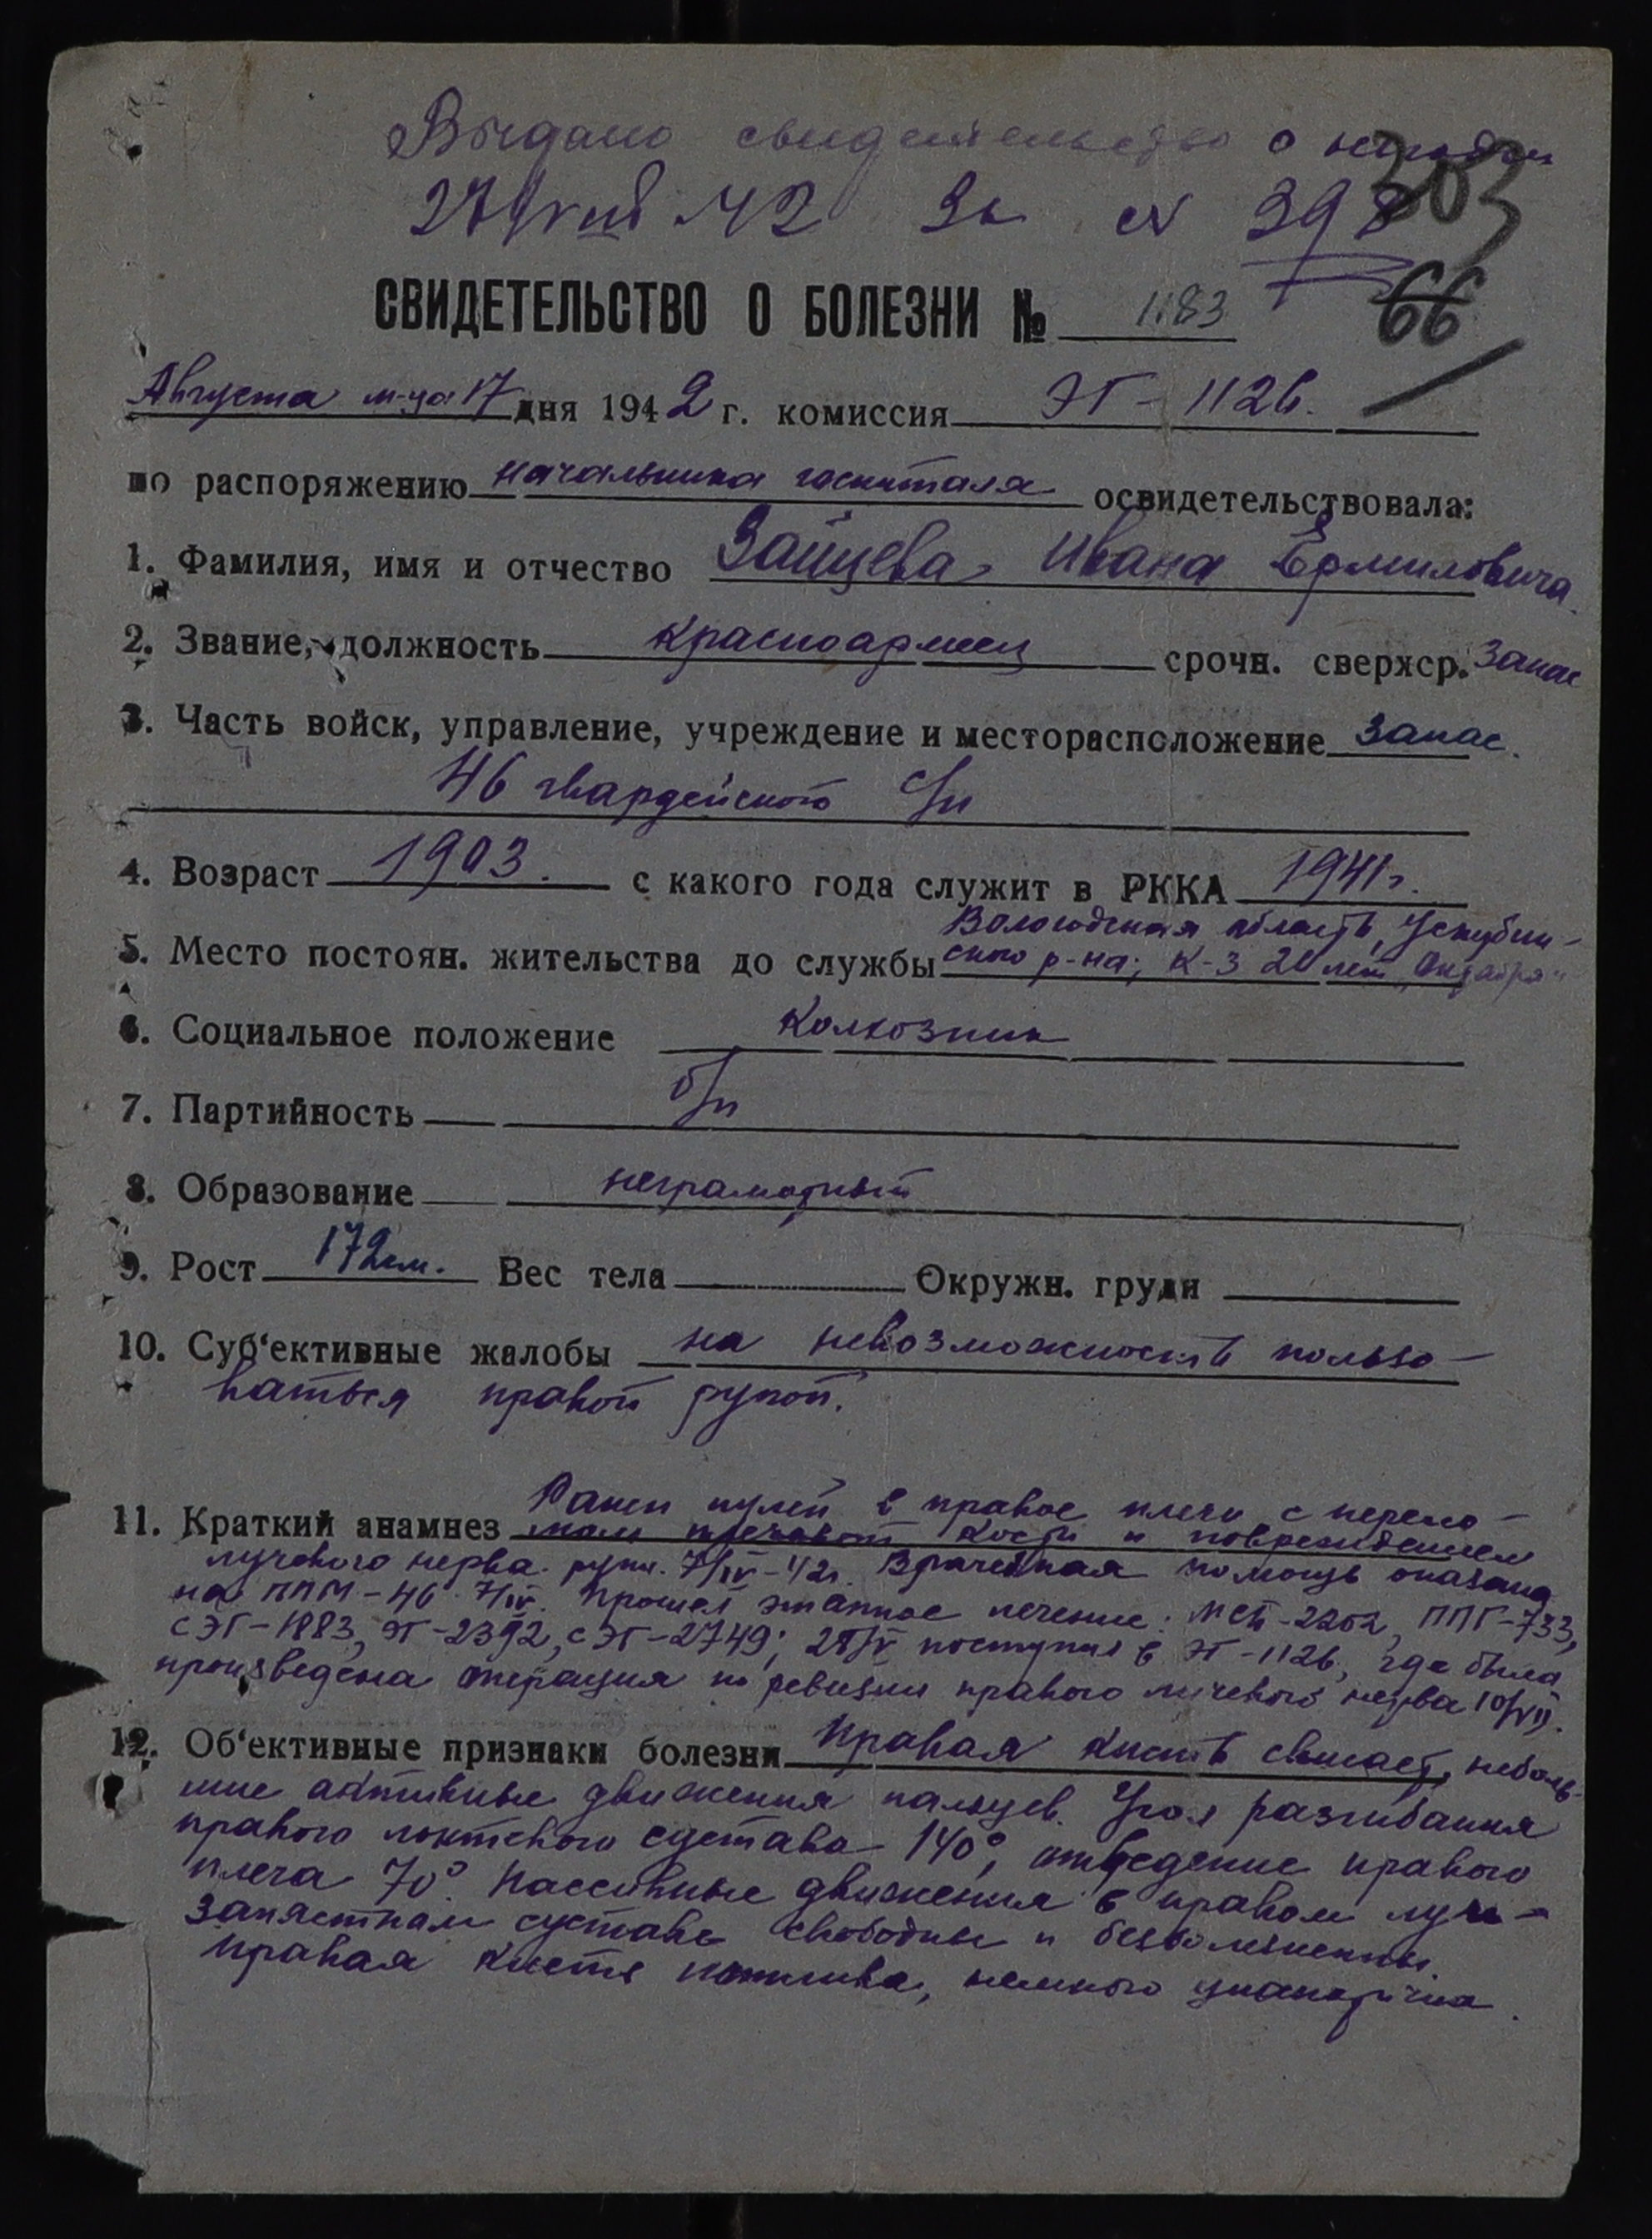 Выдано свидетельство о
за № 398
303
66
СВИДЕТЕЛЬСТВО О БОЛЕЗНИ № 1183
Августа м-ца 17 дня 1942 г. комиссия ЭГ-1126.
по распоряжению начальника госпиталя освидетельствовала:
1. Фамилия, имя и отчество Зайцева Ивана Ермиловича.
2. Звание, должность Красноармеец срочн. сверхср. Запас
3. Часть войск, управление, учреждение и месторасположение запас.
46 гвардейского с/п
4. Возраст 1903. с какого года служит в РККА 1941г.
Вологодская область,
5. Место постоян. жительства до службы ского р-на; к-з 20 лет „Октября"
6. Социальное положение Колхозник
7. Партийность б/п
8. Образование неграмотный
9. Рост 172см. Вес тела Окружн. груди
10. Суб'ективные жалобы на невозможность пользо-
ваться правой рукой.
Ранен пулей в правое плечо с перело-
11. Краткий анамнез мом плечевой кости и повреждением
лучевого нерва. 7/IV-42г. Врачебная помощь оказана
на ППМ-46 7/IV. Прошел этапное лечение: 2202, ППГ-733,
СЭГ-1883, ЭГ-2392, СЭГ-2749; 28/V поступил в ЭГ-1126, где была
произведена операция по ревизии правого лучевого нерва 10/VII.
12. Об'ективные признаки болезни Правая кисть свисает, неболь-
шие активные движения пальцев. Угол разгибания
правого локтевого сустава 140°, отведение правого
плеча 70°. Пассивные движения в правом луче-
запястном суставе свободны и безболезненны.
Правая кисть потлива, немного цианотична.